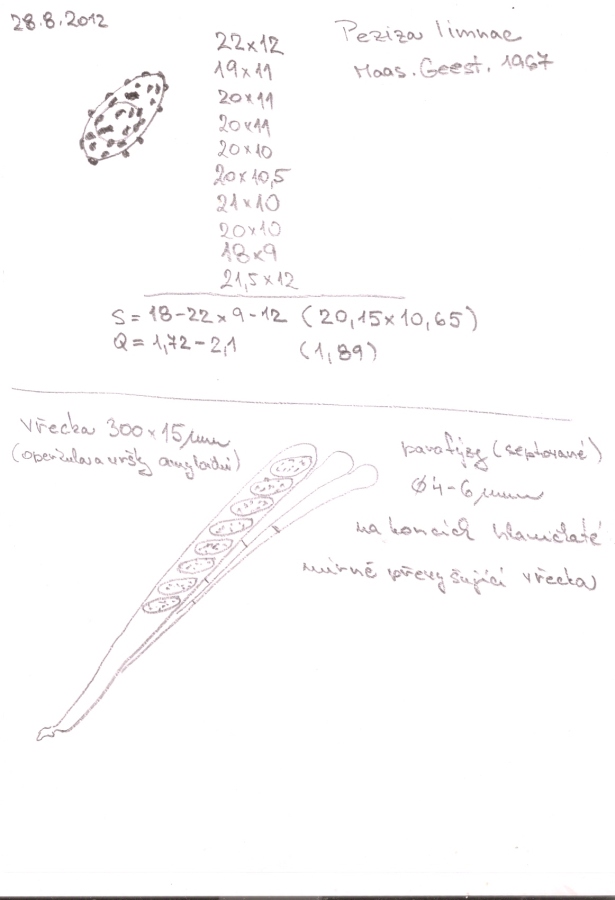 28.8.2012
Peziza limnae
Maas. Geest. 1967
22×12
19×11
20×11
20×11
20×10
20×10,5
21×10
20×10
18×9
21,5×12
S = 18-22 × 9-12 (20,15×10,65)
Q = 1,72-2,1 (1,89)
vřecka 300×15 μm
(operkula a vršky amyloidní)
parafýzy (septované)
Ø 4-6 μm
na koncích hlavičkaté
mírně převyšující vřecka